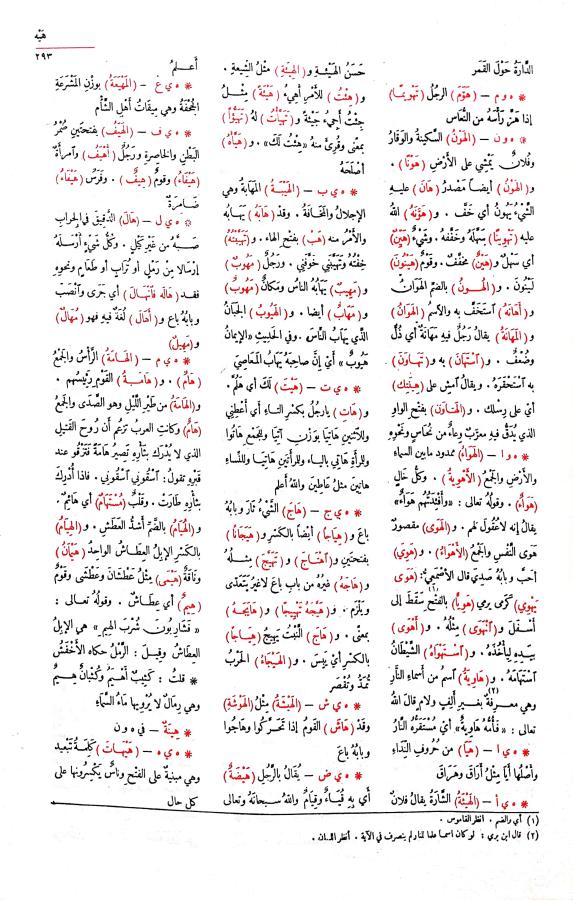 هيه
٢٩٣
الدَّارَةُ حَوْلَ القَمَر
* ه و م – (هَوَّمَ) الرجُلُ (تَهْوِيمًا)
إذا هَزَّ رَأْسَهُ من النُّعَاس
* ه و ن – (الهَوْنُ) السَّكِينَةُ والوَقَارُ
وفُلَانٌ يَمْشِي على الأَرْضِ (هَوْنًا) .
و (الهَوْنُ) أيضا مَصْدَرُ (هَانَ) عليهِ
الشَّيْءُ يَهُونُ أي خَفَّ . و (هَوَّنَهُ) اللهُ
عليه (تَهْوِينًا) سَهَّلَهُ وخَفَّفَهُ . وشَيْءٌ (هَيِّنٌ)
أي سَهْلٌ و (هَيْنٌ) مُخَفَّفٌ . وقَوْمٌ (هَيْنُونَ)
لَيْنُونَ . و (الهُــونُ) بالضم الهَوَانُ
و (أَهَانَهُ) اسْتَخَفَّ به والاسم (الهَوَانُ)
و (المَهَانَةُ) يقالُ رَجُلٌ فيه مَهَانَةٌ أي ذُلٌّ
وضُعْفٌ . و (اسْتَهَانَ) به و (تَهَاوَنَ)
به اسْتَحْقَرَهُ . ويقالُ امْشِ على (هِينَتِكَ)
أيْ على رِسْلِك . و (الهَاوَنُ) بفتح الواو
الذي يُدَقُّ فيه معرَّبٌ وِعاءٌ من نُحَاسٍ ونَحْوِهِ
* ه و ا – (الهَوَاءُ) ممدود ما بين السماءِ
والأَرْضِ والجَمْعُ (الأَهْوِيَةُ) . وكُلُّ خَالٍ
(هَوَاءٌ) . وقولُهُ تعالى : «وأَفْئِدَتُهُمْ هَوَاءٌ»
يقالُ إنه لا عُقُولَ لهم . و (الهَوَى) مقصورٌ
هَوَى النَّفْسِ والجَمْعُ (الأَهْوَاءُ) . و (هَوِيَ)
أحَبَّ وبابُهُ صَدِيَ قال الأَصْمَعِيُّ : (هَوَى
يَهْوِي) كَرَمَى يرمي (هَوِيًّا) (١) بالفَتْحِ سَقَطَ إلى
أَسْفَلَ و (انْهَوَى) مِثْلُهُ . و (أَهْوَى)
بيدِهِ لِيَأْخُذَهُ . و (اسْتَهْوَاهُ) الشَّيْطَانُ
اسْتَهَامَهُ . و (هَاوِيَةُ) اسم من أسماءِ النَّارِ
وهي معرفةٌ بغيرِ أَلِفٍ ولامٍ (٢) قال اللهُ
تعالى : « فَأُمُّهُ هَاوِيَةٌ » أي مُسْتَقَرُّهُ النَّارُ
* ه ي ا – (هَيَا) من حُروفِ النِّدَاءِ
وأَصْلُهَا أَيَا مِثْلُ أَرَاقَ وهَرَاقَ
* ه ي أ – (الهَيْئَةُ) الشَّارَةُ يقالُ فلانٌ
حَسَنُ الهَيْئَةِ و (الهِيئَةِ) مثلُ الشِّيعَةِ .
و (هِئْتُ) للأَمْرِ أَهِيءُ (هَيْئَةً) مِثْـلُ
جِئْتُ أَجِيءُ جَيْئَةً و (تَهَيَّأْتُ) له (تَهَيُّؤًا)
بمعنًى وقُرِئَ منه «هِئْتُ لَكَ» . و (هَيَّأَهُ)
أَصْلَحَهُ
* ه ي ب – (الهَيْبَةُ) المَهَابَةُ وهي
الإِجلالُ والمَخَافَةُ . وقَدْ (هَابَهُ) يَهَابُهُ
والأَمْرُ منه (هَبْ) بفتح الهاء . و (تَهَيَّبْتُهُ)
خِفْتُهُ وتَهَيَّبَنِي خَوَّفَنِي . ورَجُلٌ (مَهُوبٌ)
و (مَهِيبٌ) يَهَابُهُ الناسُ ومَكَانٌ (مَهُوبٌ)
و (مَهَابٌ) أيضا . و (الهَيُوبُ) الجَبَانُ
الذي يَهابُ الناسَ . وفي الحديثِ «الإيمانُ
هَيُوبٌ» أيْ إنَّ صاحِبَهُ يَهابُ المَعَاصِيَ
* ه ي ت – (هَيْتَ) لَكَ أي هَلُمَّ .
و (هَاتِ) يا رجُلُ بكسْرِ التاءِ أي أَعْطِنِي
وللاثنَينِ هَاتِيَا بوَزْنِ آتِيَا وللجَمْعِ هَاتُوا
وللمَرأَةِ هَاتِي بالياء وللمرأَتَيْنِ هَاتِيَا وللنِّسَاءِ
هَاتِينَ مثلُ عَاطِينَ واللهُ أعلم
* ه ي ج – (هَاجَ) الشَّيْءُ ثَارَ وبابُهُ
باعَ و (هِيَاجًا) أيضاً بالكَسْرِ و (هَيَجَانًا)
بفتحتين و (اهْتَاجَ) و (تَهَيَّجَ) مِثـلُهُ
و (هَاجَهُ) غيرُهُ من باب باعَ لا غيرُ يَتَعَدَّى
ويَلْزَمُ . و (هَيَّجَهُ تَهْيِيجًا) و (هَايَجَهُ)
بمعنًى . و (هَاجَ) النَّبْتُ يَهِيجُ (هِيَاجًا)
بالكسْرِ أيْ يَبِسَ . و (الهَيْجَاءُ) الحَرْبُ
تُمَدُّ وتُقْصَر
* ه ي ش – (الهَيْشَةُ) مِثْلُ (الهَوْشَةِ)
وقَدْ (هَاشَ) القَوْمُ إذا تَحَرَّكُوا وهَاجُوا
وبابُهُ باعَ
* ه ي ض – يقالُ بالرَّجُلِ (هَيْضَةٌ)
أي بِهِ قُيَاءٌ وقِيَامٌ واللهُ سبحانه وتعالى
أَعـلمُ
* ه ي ع – (المَهْيَعَةُ) بوزْنِ المَشْرَعَةِ
الجُحْفَةُ وهي مِيقَاتُ أهْلِ الشَّأْمِ
* ه ي ف – (الهَيَفُ) بفتحتين ضُمْرُ
البَطْنِ والخاصِرةِ ورَجُلٌ (أَهْيَفُ) وامرأةٌ
(هَيْفَاءُ) وقومٌ (هِيفٌ) . وفَرَسٌ (هَيْفَاءُ)
ضَامِرَةٌ
* ه ي ل – (هَالَ) الدَّقِيقَ في الجِرابِ
صَبَّهُ من غيرِ كَيْلٍ . وكلُّ شيءٍ أَرْسَلَهُ
إِرْسَالًا من رَمْلٍ أو تُرَابٍ أو طَعَامٍ ونحوِهِ
فقـد (هَالَهُ فَانْهَالَ) أي جَرَى وانْصَبَّ
وبابُهُ باعَ و (أَهَالَ) لُغَةٌ فيه فهو (مُهَالٌ)
و (مَهِيلٌ)
* ه ي م – (الهَامَةُ) الرَّأْسُ والجَمْعُ
(هَامٌ) . و (هَامَةُ) القَوْمِ رَئِيسُهُم .
و (الهَامَةُ) من طَيْرِ اللَّيْلِ وهو الصَّدَى والجَمعُ
(هَامٌ) وكانت العرب تزعُمُ أن رُوحَ القَتِيلِ
الذي لا يُدْرَكُ بثأرِهِ تَصِيرُ هَامَةً فتَزْقُو عند
قَبْرِهِ تقولُ : اسْقُونِي اسْقُونِي . فإذا أُدْرِكَ
بثأرِهِ طارَتْ . وقَلْبٌ (مُسْتَهَامٌ) أي هَائِمٌ .
و (الهُيَامُ) بالضَّمِّ أَشَدُّ العَطَشِ . و (الهِيَامُ)
بالكَسْرِ الإِبِلُ العِطَاشُ الواحِدُ (هَيْمَانُ)
وناقَةٌ (هَيْمَى) مِثْلُ عَطْشَانَ وعَطْشَى وقَوْمٌ
(هِيمٌ) أي عِطَاشٌ . وقولُهُ تعالى :
« فَشَارِبُونَ شُرْبَ الهِيمِ » هي الإِبلُ
العِطَاشُ وقيلَ : الرَّمْلُ حكاه الأَخْفَشُ
* قلتُ : كَثِيبٌ أَهْيَمُ وكُثْبَانٌ هِيـمٌ
وهي رِمَالٌ لا يُرْوِيهَا مَاءُ السَّمَاءِ
* هِينَةٌ – في ه و ن
* ه ي ه – (هَيْهَاتَ) كَلِمَةُ تَبْعِيد
وهي مبنيةٌ على الفَتْحِ وناسٌ يَكْسِرُونها على
كل حال
(١) أي والضم . انظر القاموس .
(٢) قال ابن بري : لو كان اسمـا علما للنار لم ينصرف في الآية . انظر اللسان .